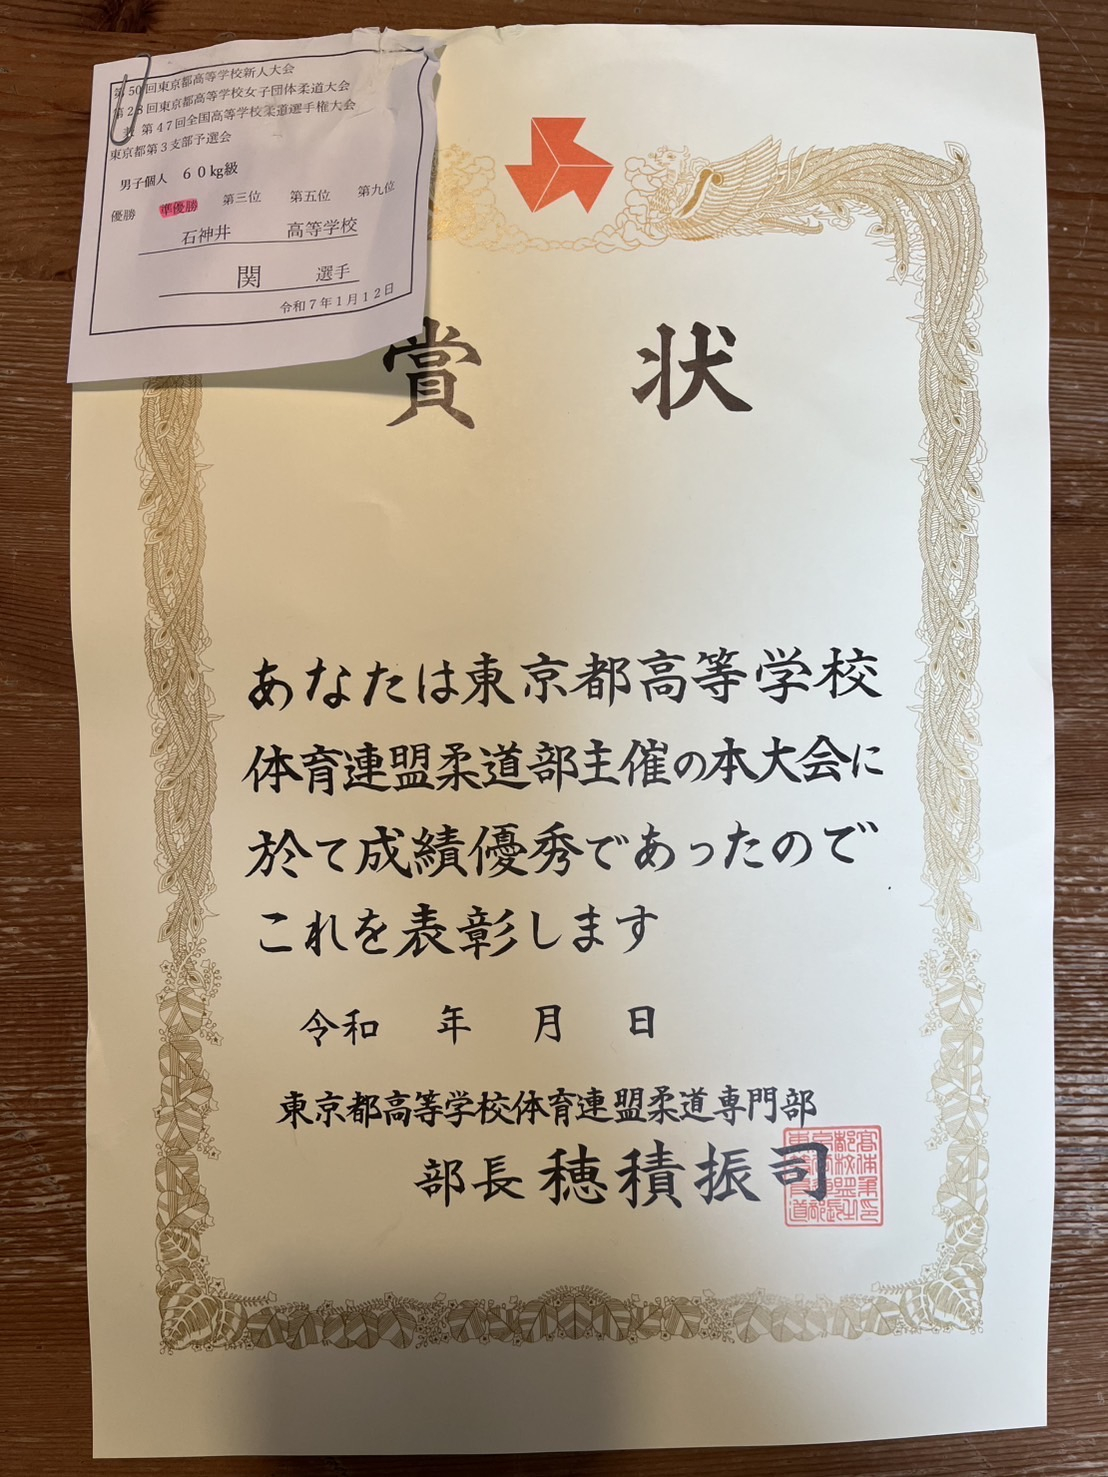 第50回東京都高等学校新人大会
第28回東京都高等学校女子団体柔道大会
兼 第47回全国高等学校柔道選手権大会
東京都第3支部予選会
男子個人 60kg級
優勝 準優勝 第三位 第五位 第九位
石神井 高等学校
関 選手
令和7年1月12日
賞 状
あなたは東京都高等学校
体育連盟柔道部主催の本大会に
於て成績優秀であったので
これを表彰します
令和 年 月 日
東京都高等学校体育連盟柔道専門部
部長 穂積振司